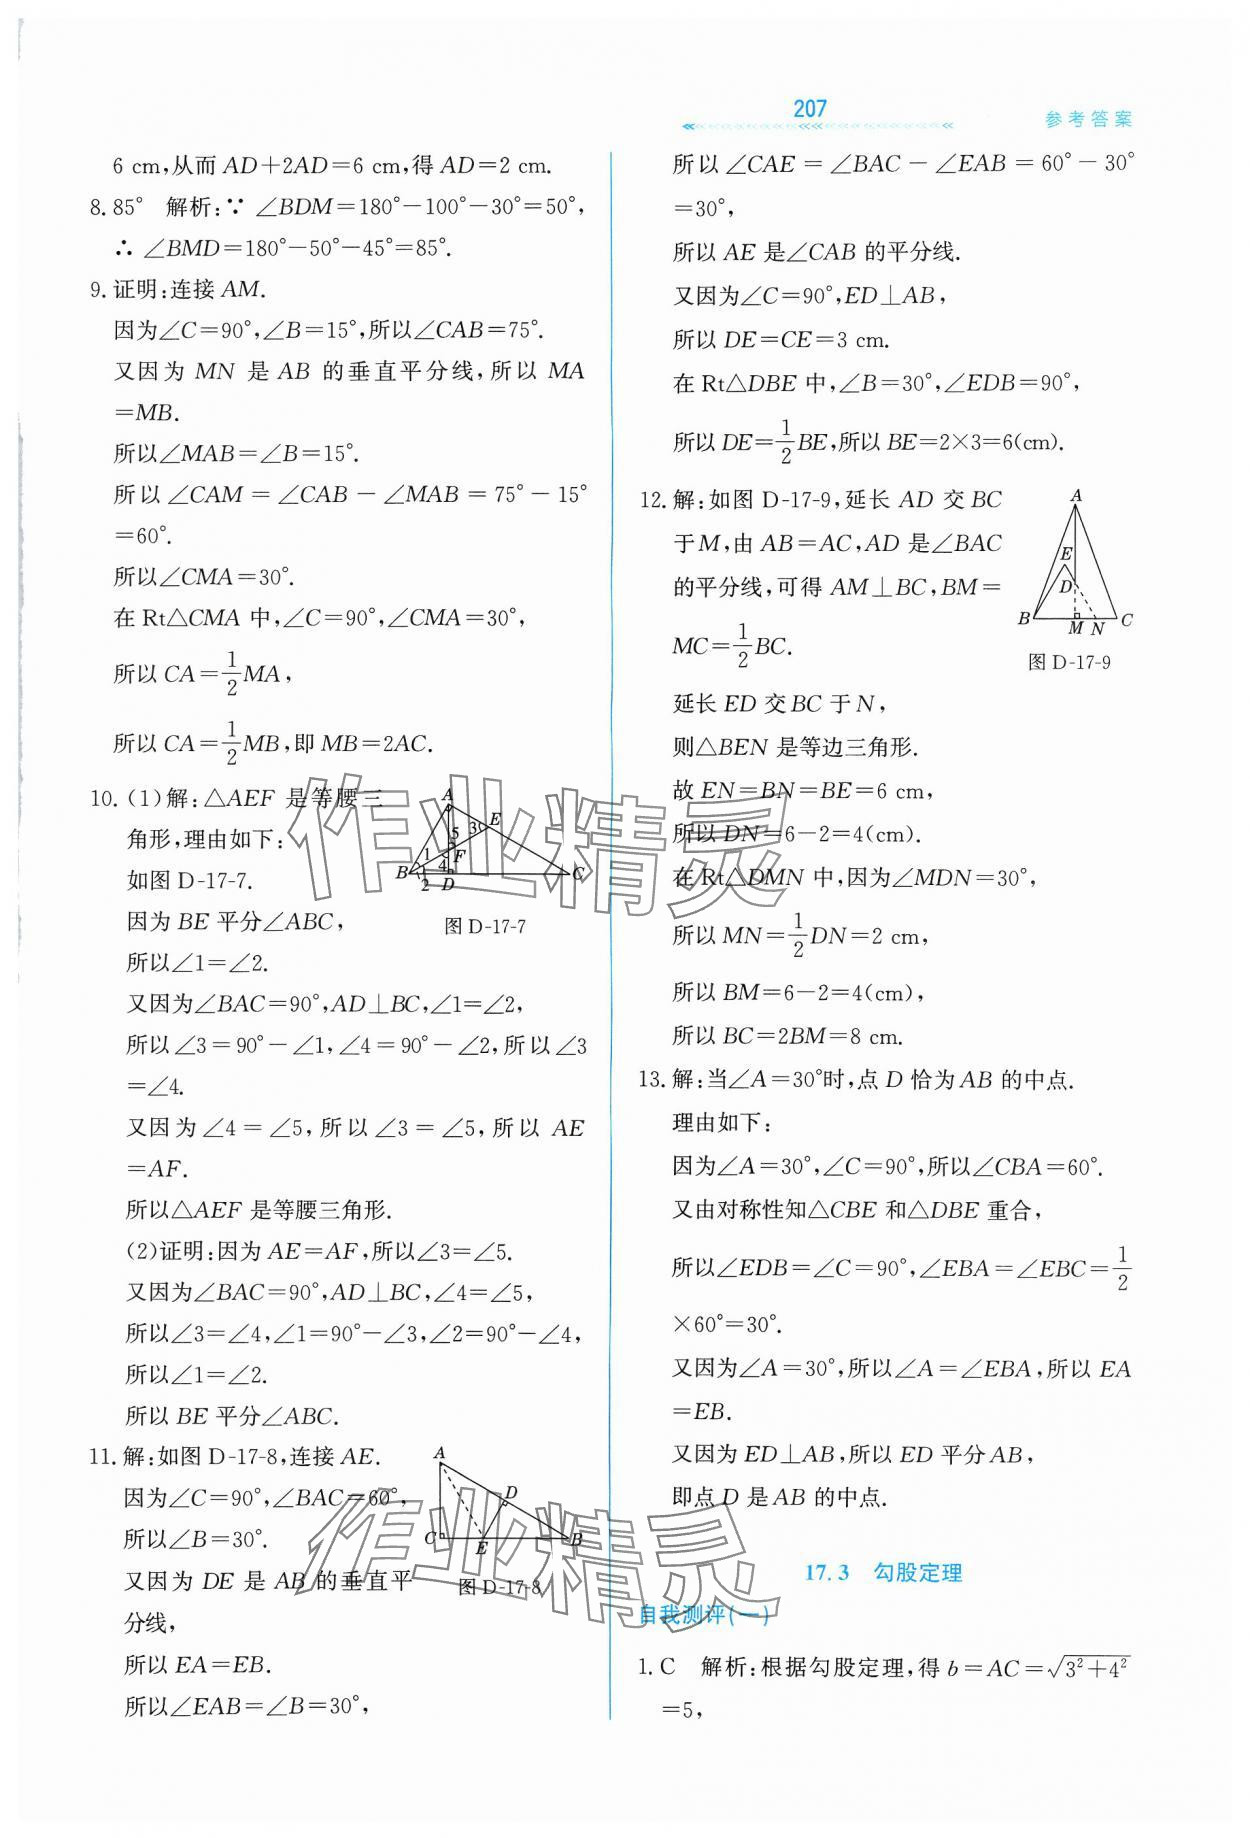 207
参考答案
6 cm,从而 AD+2AD=6 cm,得 AD=2 cm.
8. 85° 解析:∵ ∠BDM=180°−100°−30°=50°,
∴ ∠BMD=180°−50°−45°=85°.
9. 证明:连接 AM.
因为∠C=90°,∠B=15°,所以∠CAB=75°.
又因为 MN 是 AB 的垂直平分线,所以 MA
=MB.
所以∠MAB=∠B=15°.
所以 ∠CAM = ∠CAB − ∠MAB = 75° − 15°
=60°.
所以∠CMA=30°.
在 Rt△CMA 中,∠C=90°,∠CMA=30°,
所以 CA=1/2MA,
所以 CA=1/2MB,即 MB=2AC.
10. (1)解:△AEF 是等腰三
角形,理由如下:
如图 D-17-7.
因为 BE 平分∠ABC,
所以∠1=∠2.
A
B
C
D
E
F
1
2
3
4
5
图 D-17-7
又因为∠BAC=90°,AD⊥BC,∠1=∠2,
所以 ∠3=90°−∠1,∠4=90°−∠2,所以 ∠3
=∠4.
又因为 ∠4=∠5,所以 ∠3=∠5,所以 AE
=AF.
所以△AEF 是等腰三角形.
(2)证明:因为 AE=AF,所以∠3=∠5.
又因为∠BAC=90°,AD⊥BC,∠4=∠5,
所以∠3=∠4,∠1=90°−∠3,∠2=90°−∠4,
所以∠1=∠2.
所以 BE 平分∠ABC.
11. 解:如图 D-17-8,连接 AE.
因为∠C=90°,∠BAC=60°,
所以∠B=30°.
又因为 DE 是 AB 的垂直平
分线,
所以 EA=EB.
所以∠EAB=∠B=30°,
A
D
C
E
B
图 D-17-8
所以 ∠CAE = ∠BAC − ∠EAB = 60° − 30°
=30°,
所以 AE 是∠CAB 的平分线.
又因为∠C=90°,ED⊥AB,
所以 DE=CE=3 cm.
在 Rt△DBE 中,∠B=30°,∠EDB=90°,
所以 DE=1/2BE,所以 BE=2×3=6(cm).
12. 解:如图 D-17-9,延长 AD 交 BC
于M,由 AB=AC,AD 是∠BAC
的平分线,可得 AM⊥BC,BM=
MC=1/2BC.
A
E
D
B
M
N
C
图 D-17-9
延长 ED 交 BC 于 N,
则△BEN 是等边三角形.
故 EN=BN=BE=6 cm,
所以 DN=6−2=4(cm).
在 Rt△DMN 中,因为∠MDN=30°,
所以 MN=1/2DN=2 cm,
所以 BM=6−2=4(cm),
所以 BC=2BM=8 cm.
13. 解:当∠A=30°时,点 D 恰为 AB 的中点.
理由如下:
因为∠A=30°,∠C=90°,所以∠CBA=60°.
又由对称性知△CBE 和△DBE 重合,
所以∠EDB=∠C=90°,∠EBA=∠EBC=1/2
×60°=30°.
又因为∠A=30°,所以∠A=∠EBA,所以 EA
=EB.
又因为 ED⊥AB,所以 ED 平分 AB,
即点 D 是 AB 的中点.
17.3 勾股定理
自我测评(一)
1. C 解析:根据勾股定理,得 b=AC=√(3²+4²)
=5,
作业精灵
作业精灵